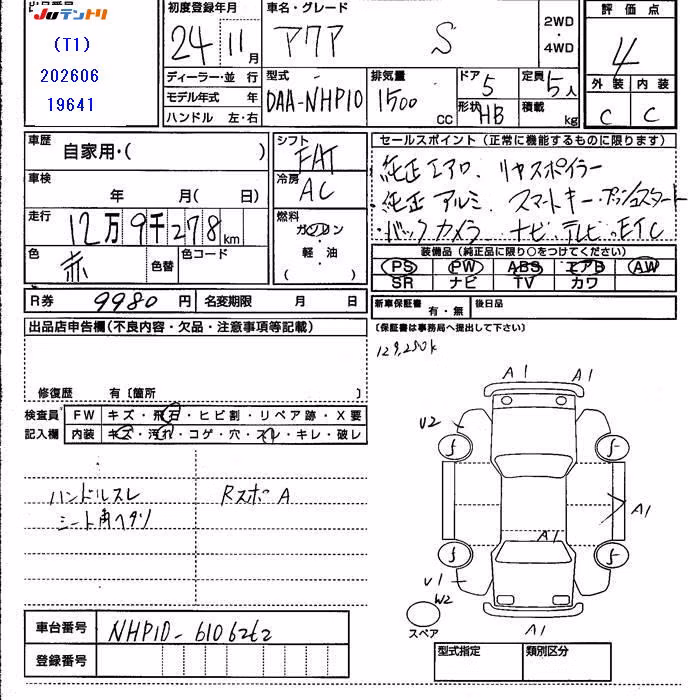 出品番号
JUテントリ
(T1)
202606
19641
初度登録年月
24 11月
車名・グレード
アクア S
2WD
・
4WD
評価点
4
外装 内装
C C
ディーラー・並行
モデル年式 年
ハンドル 左・右
型式
DAA-NHP10
排気量
1500 cc
ドア 5
形状 HB
定員 5人
積載 kg
車歴
自家用・( )
車検
年 月( 日)
走行
12万9千278km
色
赤 色替 色コード
R券 9980円 名変期限 月 日
シフト
FAT
冷房
AC
燃料
ガソリン
・
軽・油
( )
セールスポイント(正常に機能するものに限ります)
・純正エアロ. リヤスポイラー
・純正アルミ. スマートキー・プッシュスタート
・バックカメラ ナビ・テレビ・ETC
装備品(純正品に限り○をつけてください)
PS PW ABS エアB AW
SR ナビ TV カワ
新車保証書 有・無 後日品
(保証書は事務局へ提出して下さい)
129,250k
出品店申告欄(不良内容・欠品・注意事項等記載)
修復歴 有〔箇所 〕
検査員 FW キズ・飛石・ヒビ割・リペア跡・X要
記入欄 内装 キズ・汚れ・コゲ・穴・スレ・キレ・破レ
ハンドルスレ RスポA
シート角ヘタリ
A1 A1
U2
5 5
A1
A1
5 5
U1
W2
A1
スペア
車台番号 NHP10-6106262
登録番号
型式指定 類別区分